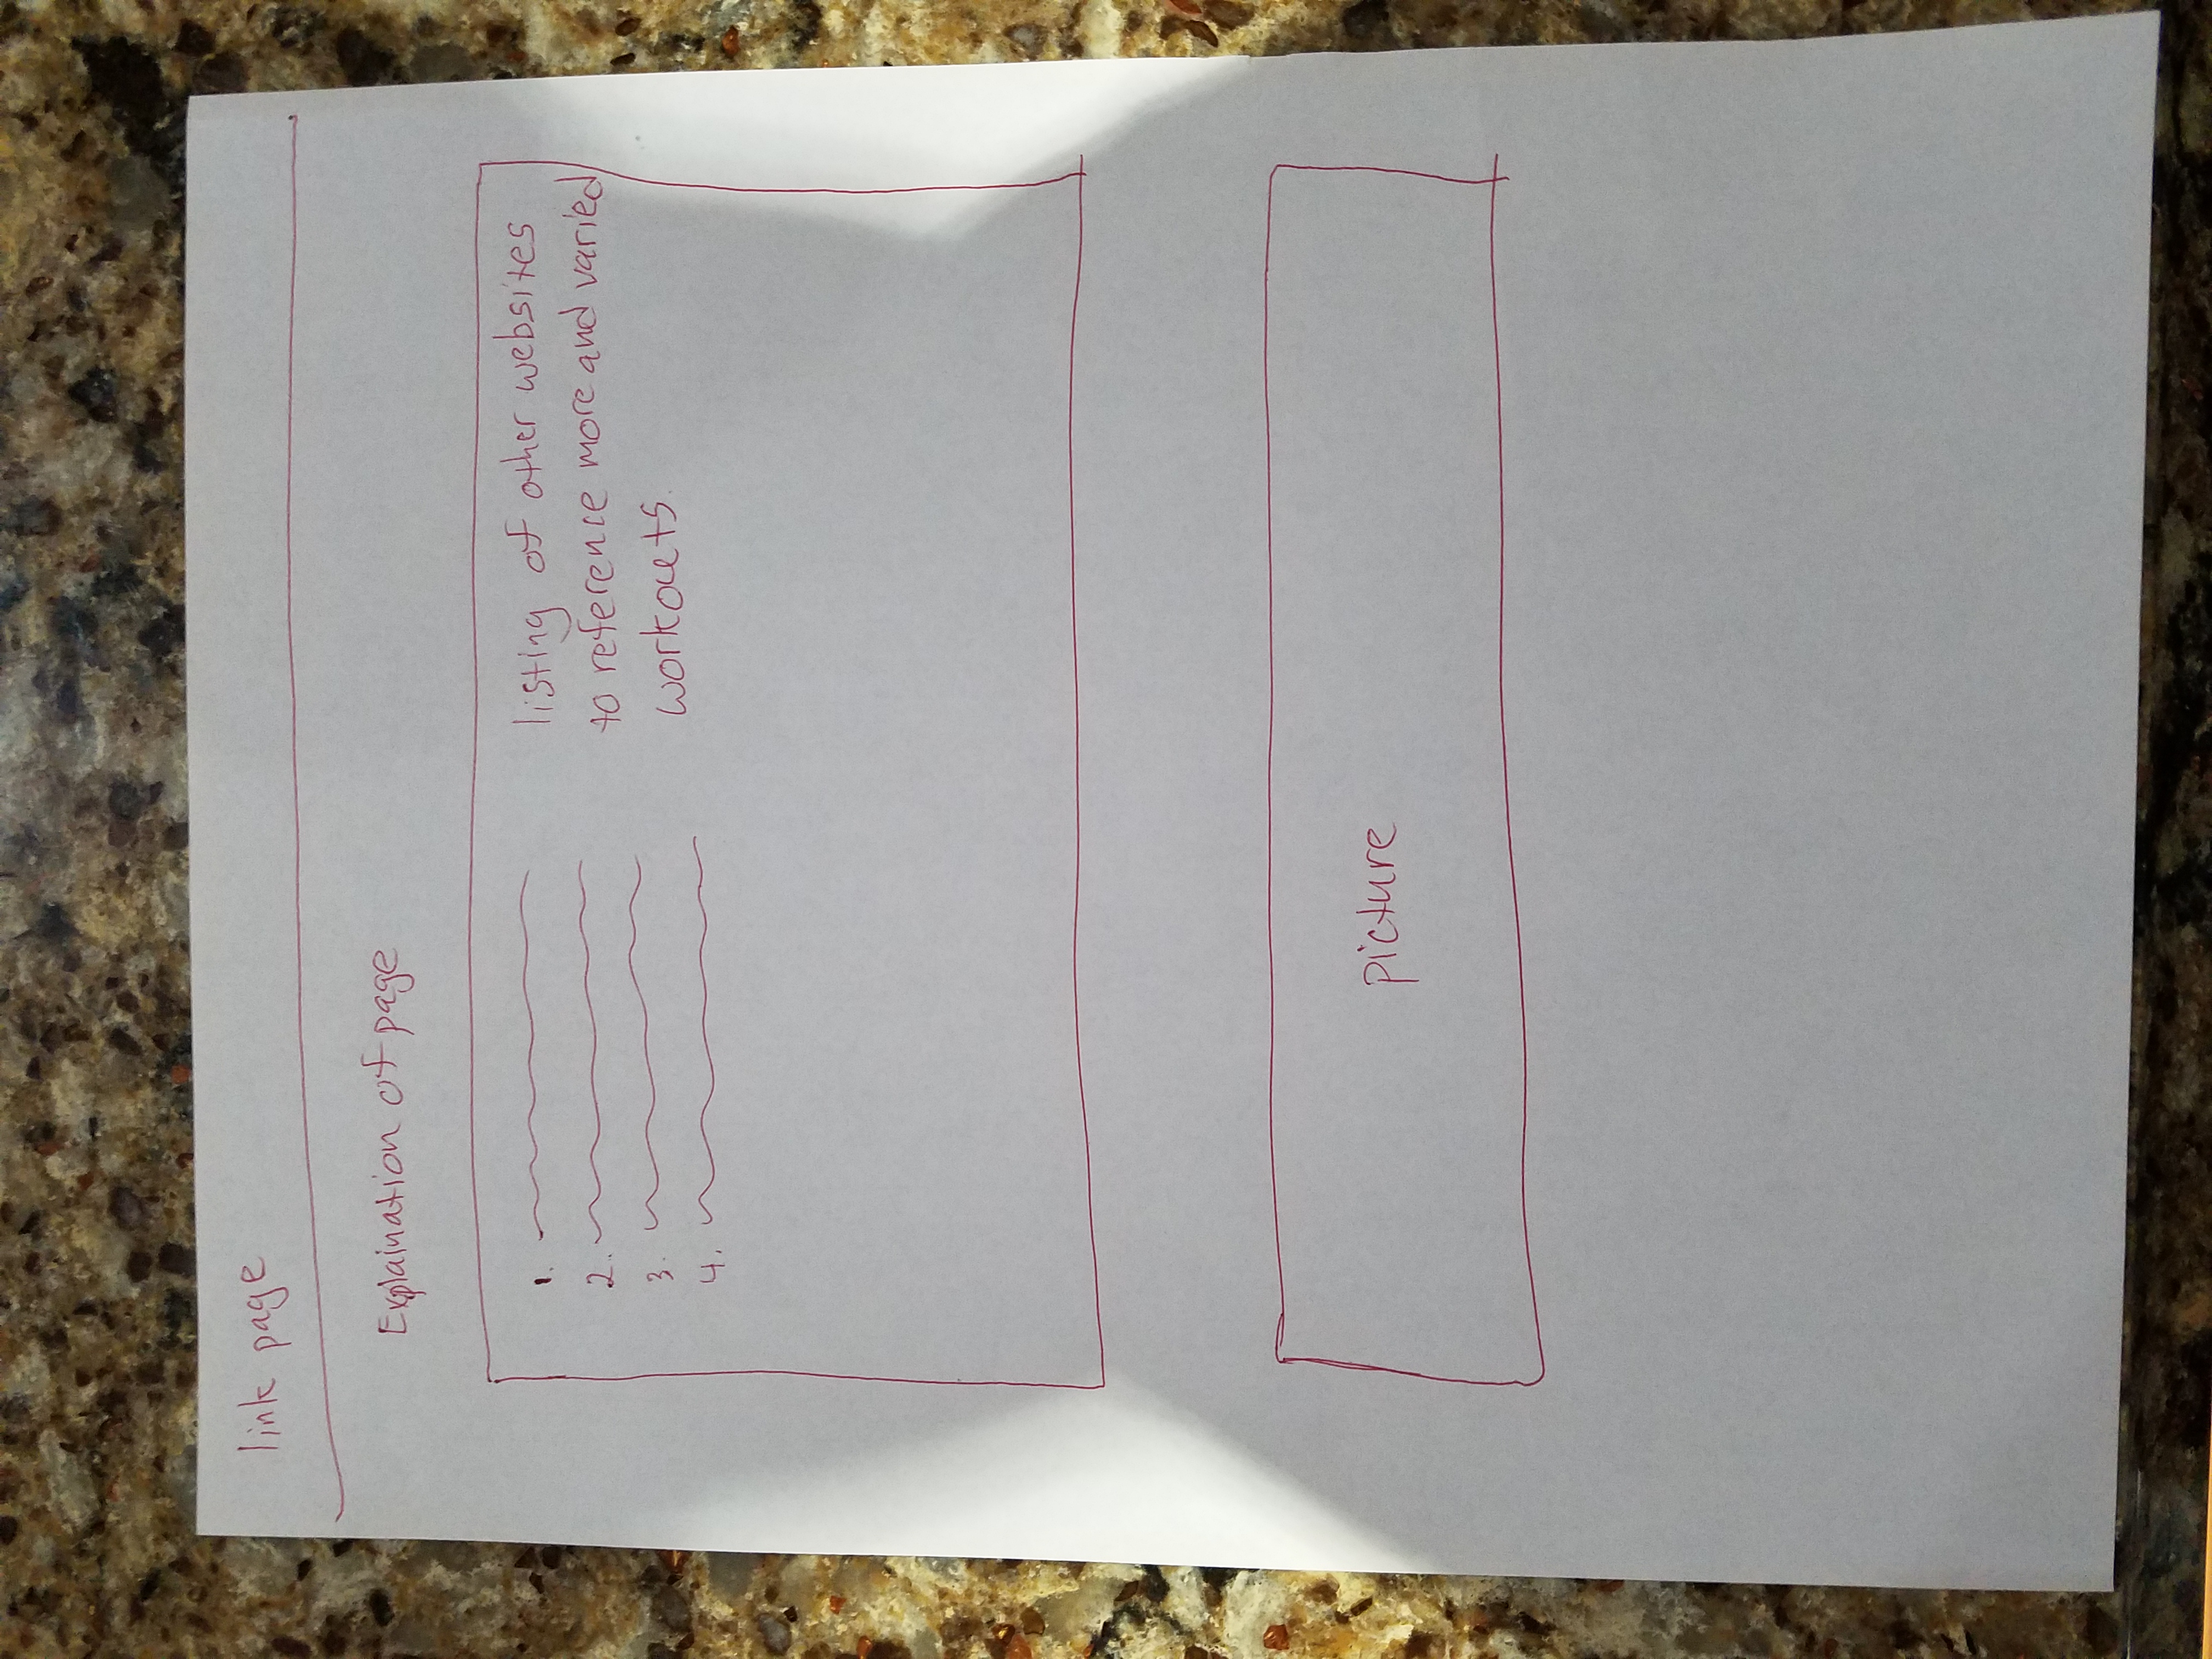 link page
Explaination of page
1.
2.
3.
4.
listing of other websites
to reference more and varied
workouts.
picture